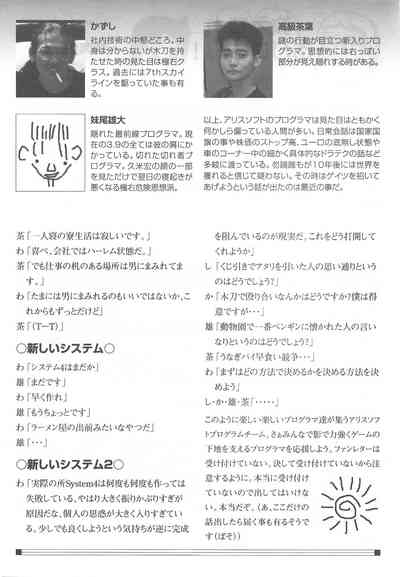 かずし
社内技術の中堅どころ。中
身は分からないが木刀を持
たせた時の見た目は極右ク
ラス。過去には7thスカイ
ラインを駆っていた事も有
る。
高級茶葉
謎の行動が目立つ新入りプロ
グラマ。思想的には右っぽい
部分が見え隠れする時がある。
妹尾雄大
隠れた最前線プログラマ。現
在の3.9の全ては彼の肩にか
かっている。切れた切れ者プ
ログラマ。久米宏の顔の一部
を見ただけで翌日の寝起きが
悪くなる極右危険思想派。
以上、アリスソフトのプログラマは見た目はともかく
何かしら偏っている人間が多い。日常会話は国家国
旗の事や株価のストップ高、ユーロの底無し状態や
車のコーナー中の細かく具体的なドラテクの話など
多岐に渡っている。勿論誰もが10年後には世界を
獲れると信じて疑わない。その時はゲイツを招いて
あげようという話が出たのは最近の事だ。
茶「一人寝の寮生活は寂しいです。」
わ「喜べ、会社ではハーレム状態だ。」
茶「でも仕事の机のある場所は男にまみれてま
す。」
わ「たまには男にまみれるのもいいではないか、こ
れからもずっとだけど」
茶「（T－T）」
○新しいシステム○
わ「システム4はまだか」
雄「まだです」
わ「早く作れ」
雄「もうちょっとです」
わ「ラーメン屋の出前みたいなやつだ」
雄「・・・」
○新しいシステム2○
わ「実際の所System4は何度も何度も作っては
失敗している、やはり大きく振りかぶりすぎが
原因だな、個人の思惑が大きく入りすぎてい
る、少しでも良くしようという気持ちが逆に完成
を阻んでいるのが現実だ、これをどう打開して
くれようか」
し「くじ引きでアタリを引いた人の思い通りという
のはどうでしょう?」
か「木刀で殴り合いなんかはどうですか?僕は得
意ですが・・・」
雄「動物園で一番ペンギンに懐かれた人の言い
なりというのはどうでしょう?」
茶「うなぎパイ早食い競争・・・」
わ「まずはどの方法で決めるかを決める方法を決
めよう」
し・か・雄・茶「・・・・・」
このように楽しい楽しいプログラマ達が集うアリスソフ
トプログラムチーム、さぁみんなで影で力強くゲームの
下地を支えるプログラマを応援しよう。ファンレターは
受け付けていない。決して受け付けていないから注
意するように。本当に受け付け
ていないので出してはいけな
い。本当だぞ。（あ、ここだけの
話出したら届く事も有るそうで
す（ぼそ））